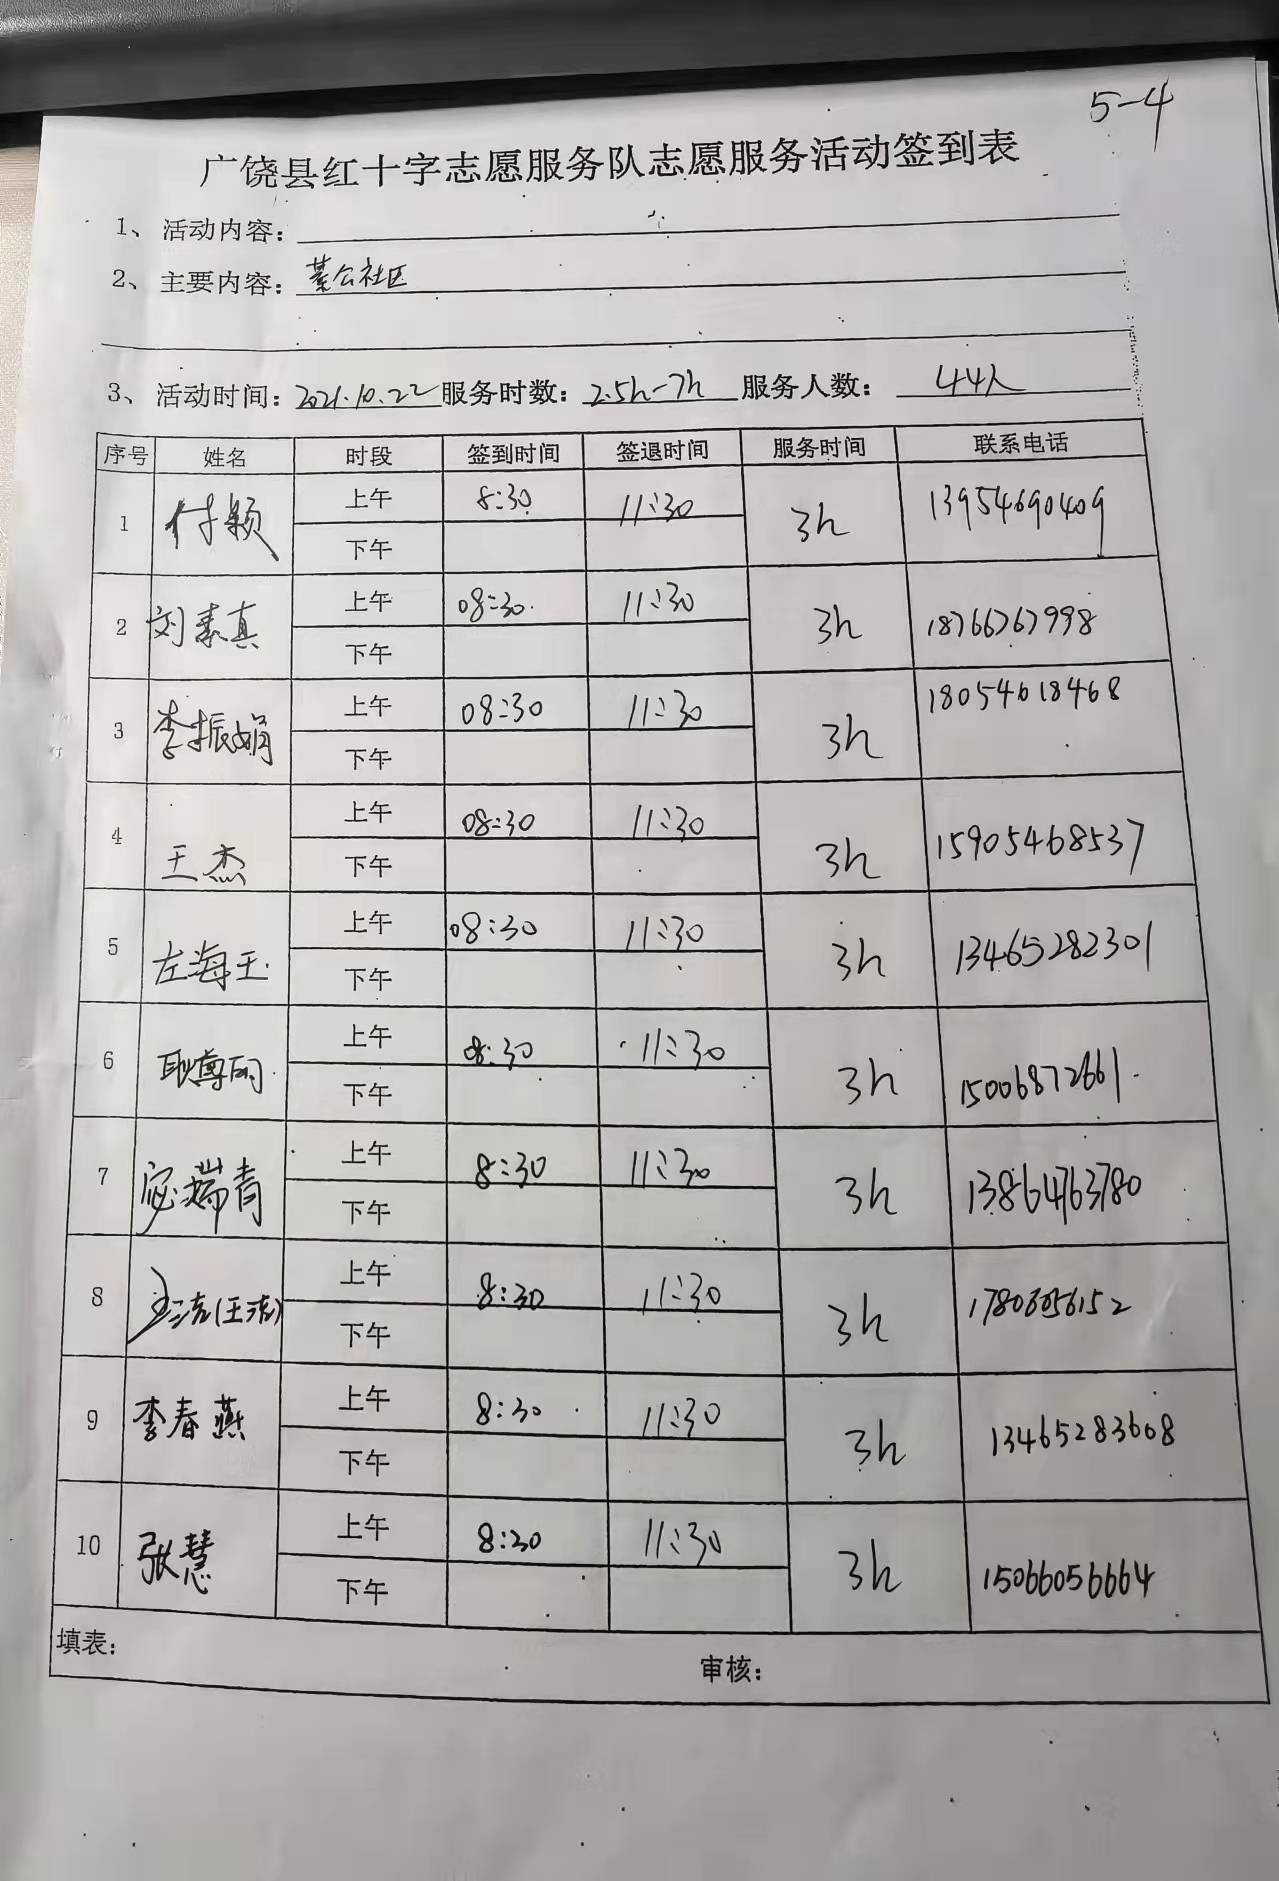 5-4
广饶县红十字志愿服务队志愿服务活动签到表
1、活动内容：
2、主要内容：綦公社区
3、活动时间：2021.10.22 服务时数：2.5h-7h 服务人数：44人
序号 姓名 时段 签到时间 签退时间 服务时间 联系电话
1 付颖 上午 8:30 11:30 3h 13954690409
下午
2 刘素真 上午 08:30 11:30 3h 18766767998
下午
3 李振娟 上午 08:30 11:30 3h 18054618468
下午
4 王杰 上午 08:30 11:30 3h 15905468537
下午
5 左海玉 上午 08:30 11:30 3h 13465282301
下午
6 上午 08:30 11:30 3h 15006872661
下午
7 宓瑞青 上午 8:30 11:30 3h 13864763780
下午
8 上午 8:30 11:30 3h
下午
9 李春燕 上午 8:30 11:30 3h 13465283608
下午
10 张慧 上午 8:30 11:30 3h 15066056664
下午
填表： 审核：